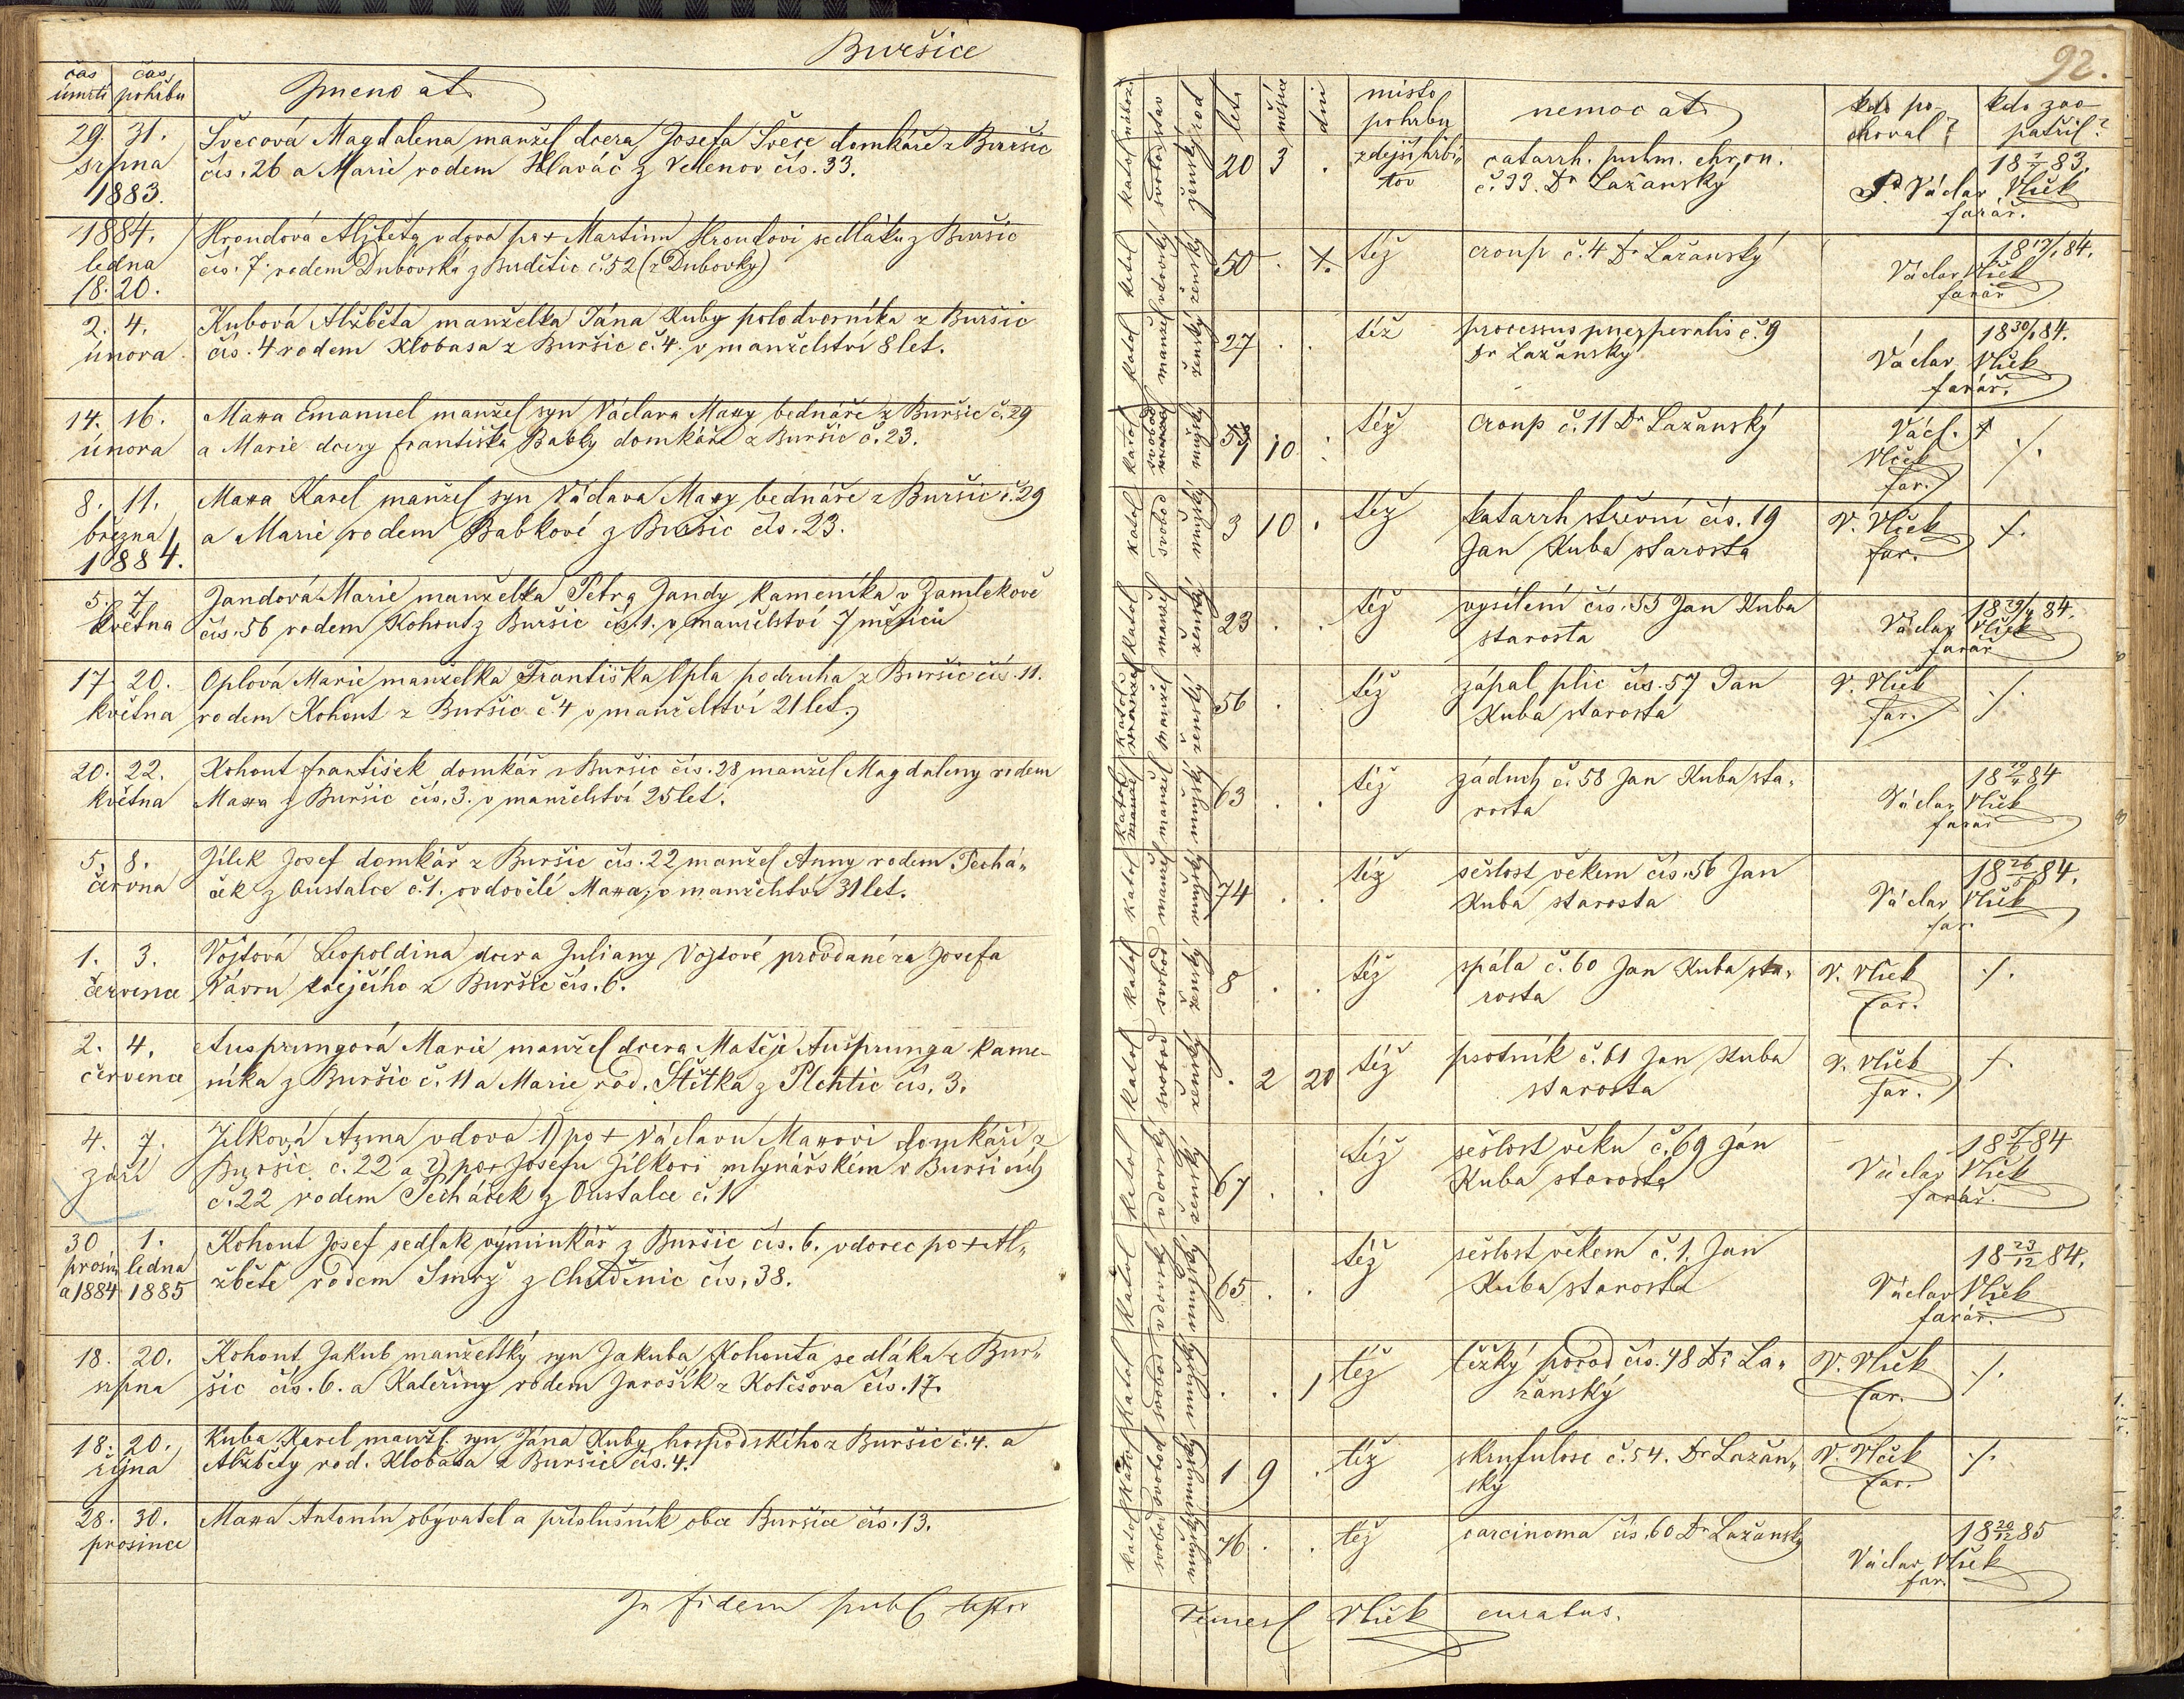 Buršice
92.
čas úmrtí
čas pohřbu
Jmeno at.
katol
stav
rod
let
měsíců
dni
místo pohrbu
nemoc at
kdo pochoval?
kdo zaopatřil?
29. 31. srpna 1883.
Švecová Magdalena manžel dcera Josefa Švece domkáře z Buršic
čís. 26 a Marie rodem Hlaváč z Velenov čís. 33.
katol svobod ženský 20 3 .
zdejší hřbitov
catarrh. pulm. chron.
č. 33. Dr Lažanský
Václav Vlček
farář.
1884. ledna 18. 20.
Hroudová Alžběta vdova po + Martinu Hroudovi sedláku z Buršic
čís. 7. rodem Dubovská z Budětic č. 52 (z Dubovky)
katol vdovský ženský 50 .
též
croup č. 4 Dr Lažanský
Václav Vlček
farář
2. 4. února
Kubová Alžběta manželka Jána Kuby polodvorníka z Buršic
čís. 4 rodem Klobasa z Buršic č. 4. v manželství 8 let.
katol manžel ženský 27 . .
též
processus puerperalis č. 9
Dr Lažanský
18 30/1 84.
Václav Vlček
farář.
14. 16. února
Maxa Emanuel manžel syn Václava Maxy bednáře z Buršic č. 29
a Marie dcery Františka Babky domkáře z Buršic č. 23.
katol svobod mužský 10
též
croup č. 11 Dr Lažanský
Václ. Vlček
far.
./.
8. 11. března 1884.
Maxa Karel manžel syn Václava Maxy bednáře z Buršic č. 29
a Marie rodem Babkové z Buršic čís. 23.
katol svobod mužský 3 10 .
též
katarrh střevní čís. 19
Jan Kuba starosta
V. Vlček
far.
./.
5. 7. května
Jandová Marie manželka Petra Jandy kameníka v Zamlekově
čís. 56 rodem Kohout z Buršic čís. 1. v manželství 7 měsíců
katol manžel ženský 23 . .
též
vysílení čís. 55 Jan Kuba
starosta
18 29/4 84.
Václav Vlček
farář
17 20. května
Oplová Marie manželka Františka Opla podruha z Buršic čís. 11.
rodem Kohout z Buršic č. 4 v manželství 21 let.
katol manžel ženský 56 .
též
zápal plic čís. 57 Jan
Kuba starosta
V. Vlček
far.
./.
20. 22. května
Kohout František domkář z Buršic čís. 28 manžel Magdaleny rodem
Maxa z Buršic čís. 3. v manželství 25 let.
katol manžel mužský 63 . .
též
záduch č. 58 Jan Kuba sta„
rosta
Václav Vlček
farář
5. 8. června
Jílek Josef domkář z Buršic čís. 22 manžel Anny rodem Pechá„
ček z Oustalce č. 1. ovdovělé Maxa, v manželství 31 let.
katol manžel mužský 74 . .
též
sešlost věkem čís. 56 Jan
Kuba starosta
Václav Vlček
far.
1. 3. července
Vojtová Leopoldina dcera Juliany Vojtové provdané za Josefa
Vávru krejčího z Buršic čís. 6.
katol svobod ženský 8 . .
též
spála č. 60 Jan Kuba sta„
rosta
V. Vlček
far.
./.
2. 4. července
Ausprungová Marie manžel dcera Matěje Aušprunga kame-
níka z Buršic č. 11 a Marie rod. Štětka z Plchtic čís. 3.
katol svobod ženský . 2 20
též
psotník č. 61 Jan Kuba
starosta
V. Vlček
far.
./.
4. 7. září
Jílková Anna vdova 1) po + Václavu Maxovi domkáři z
Buršic č. 22 a 2) po + Josefu Jílkovi mlynářském v Buršicích
č. 22 rodem Pecháček z Oustalce č. 1.
katol vdovský ženský 67 . .
též
sešlost věku č. 69 Ján
Kuba starosta
Václav Vlček
farář.
30 prosin a 1884 1. ledna 1885
Kohout Josef sedlák výminkář z Buršic čís. 6. vdovec po + Al„
žbětě rodem Smrž z Chuděnic čís. 38.
katol vdovský mužský 65 . .
též
sešlost věkem č. 1. Jan
Kuba starosta
18 23/12 84.
Václav Vlček
farář.
18. 20. srpna
Kohout Jakub manželský syn Jakuba Kohouta sedláka z Bur„
šic čís. 6. a Kateřiny rodem Jarošík z Kolešova čís. 17.
katol svobod mužský . . 1
též
těžký porod čís. 48 Dr La„
žanský
V. Vlček
far.
./.
18. 20. října
Kuba Karel manžel syn Jána Kuby hospodského z Buršic č. 4. a
Alžběty rod. Klobasa z Buršic čís. 4.
katol svobod mužský 1 9 .
též
skrufulose č. 54. Dr Lažan„
ský
V. Vlček
far.
./.
28. 30. prosince
Maxa Antonín obývatel a příslušník obce Buršice čís. 13.
katol svobod mužský 76 . .
též
carcinoma čís. 60 Dr Lažanský
18 20/12 85
Václav Vlček
far.
In fidem publ
Vlček curatus.